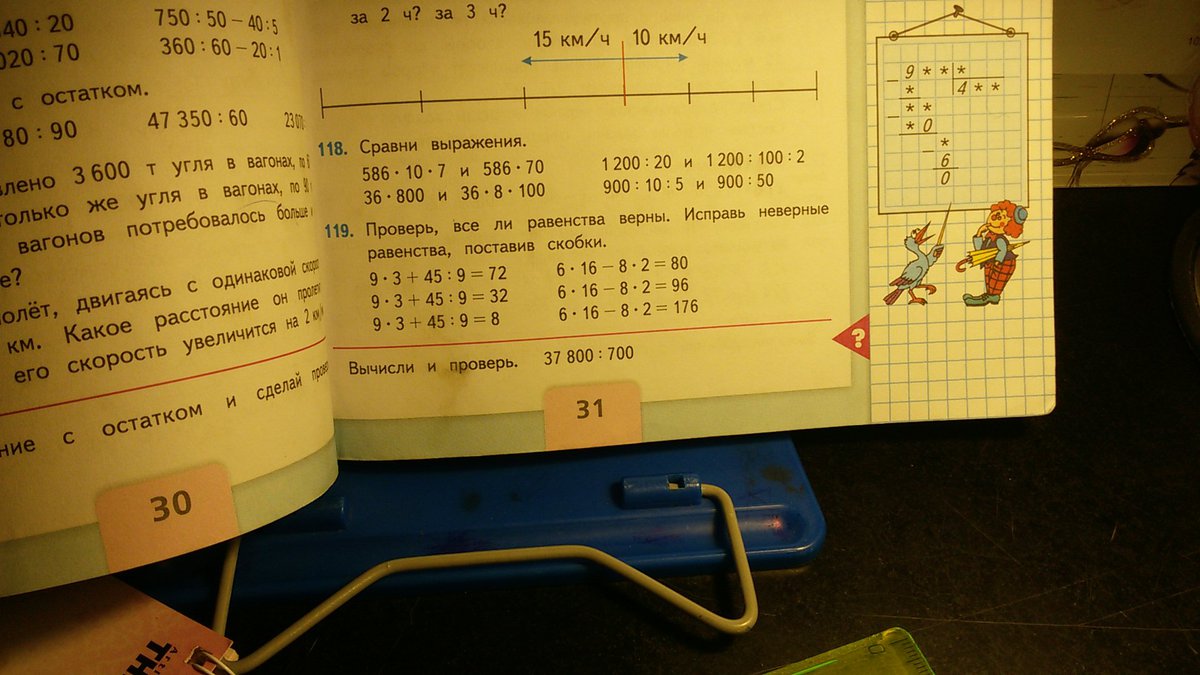 40 : 20 750 : 50 – 40 : 5
020 : 70 360 : 60 – 20 : 1
с остатком.
80 : 90 47 350 : 60
3 600 т угля в вагонах, по
только же угля в вагонах, по
вагонов потребовалось больше
е?
двигаясь с одинаковой
км. Какое расстояние он
его скорость увеличится на 2
с остатком и сделай
30
за 2 ч? за 3 ч?
15 км/ч 10 км/ч
118. Сравни выражения.
586 · 10 · 7 и 586 · 70 1 200 : 20 и 1 200 : 100 : 2
36 · 800 и 36 · 8 · 100 900 : 10 : 5 и 900 : 50
119. Проверь, все ли равенства верны. Исправь неверные
равенства, поставив скобки.
9 · 3 + 45 : 9 = 72 6 · 16 – 8 · 2 = 80
9 · 3 + 45 : 9 = 32 6 · 16 – 8 · 2 = 96
9 · 3 + 45 : 9 = 8 6 · 16 – 8 · 2 = 176
Вычисли и проверь. 37 800 : 700
?
31
– 9 * * *
* 4 * *
– * *
* 0
– *
6
0